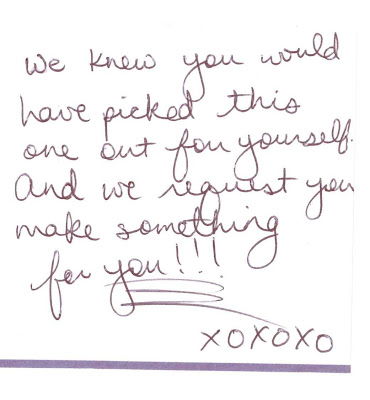 we knew you would
have picked this
one out for yourself.
And we request you
make something
for you!!!
XOXOXO